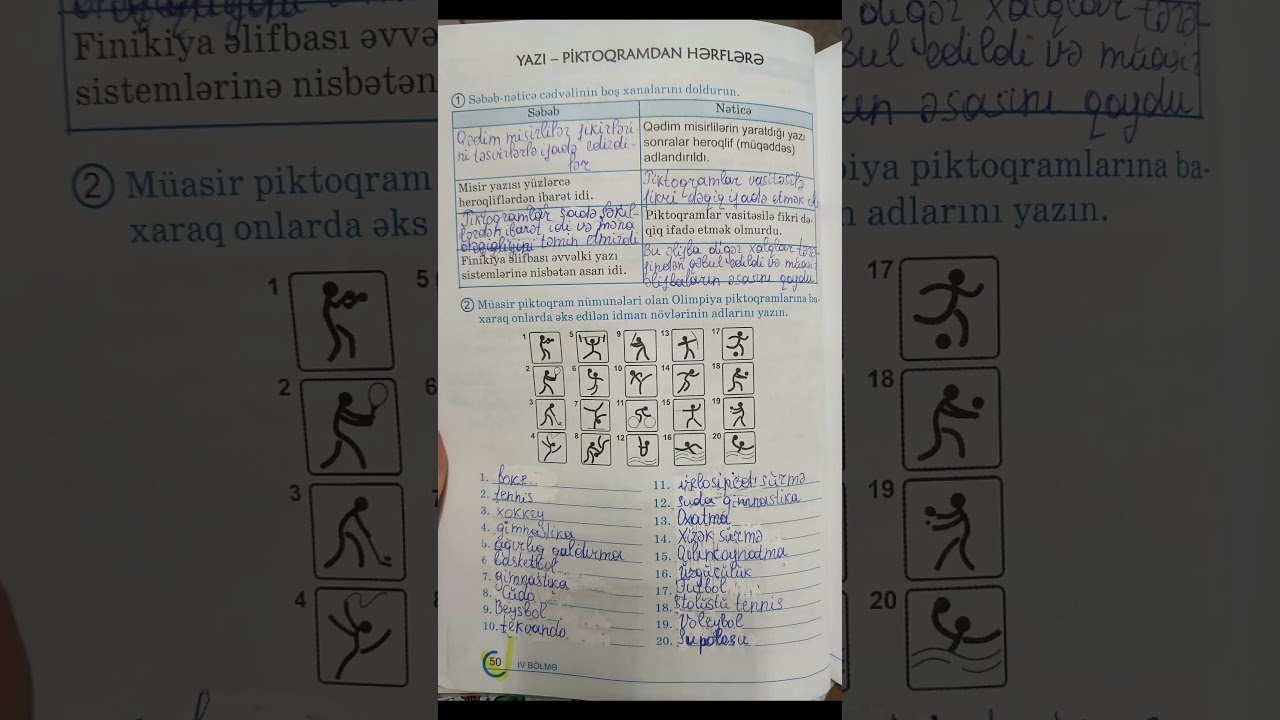 YAZI – PİKTOQRAMDAN HƏRFLƏRƏ
1 Səbəb-nəticə cədvəlinin boş xanalarını doldurun.
Səbəb
Nəticə
Qədim misirlilər fikirləri-
ni təsvirlərlə ifadə edirdi-
lər
Qədim misirlilərin yaratdığı yazı
sonralar heroqlif (müqəddəs)
adlandırıldı.
Misir yazısı yüzlərcə
heroqliflərdən ibarət idi.
Piktoqramlar vasitəsilə
fikri dəqiq ifadə etmək
Piktoqramlar sadə şəkil-
lərdən ibarət idi və məna
təmin etmirdi
Piktoqramlar vasitəsilə fikri də-
qiq ifadə etmək olmurdu.
Finikiya əlifbası əvvəlki yazı
sistemlərinə nisbətən asan idi.
Bu əlifba digər xalqlar tərə-
findən qəbul edildi və müasir
əlifbaların əsasını qoydu
2 Müasir piktoqram nümunələri olan Olimpiya piktoqramlarına ba-
xaraq onlarda əks edilən idman növlərinin adlarını yazın.
1 5 9 13 17
2 6 10 14 18
3 7 11 15 19
4 8 12 16 20
1. boks
2. tennis
3. xokkey
4. gimnastika
5. ağırlıq qaldırma
6 basketbol
7. gimnastika
8. Cüdo
9. Beysbol
10. tekvando
11. velosiped sürmə
12. suda gimnastika
13. Oxatma
14. Xizək sürmə
15. Qılıncoynatma
16. Üzgüçülük
17. Futbol
18. Stolüstü tennis
19. Voleybol
20. Su polosu
50 IV BÖLMƏ
Finikiya əlifbası əvvə
sistemlərinə nisbətən
2 Müasir piktoqram
xaraq onlarda əks
1 5
2 6
3
4
digər xalqlar tərə-
bul edildi və müasir
ın əsasını qoydu
iya piktoqramlarına ba-
n adlarını yazın.
17
18
19
20